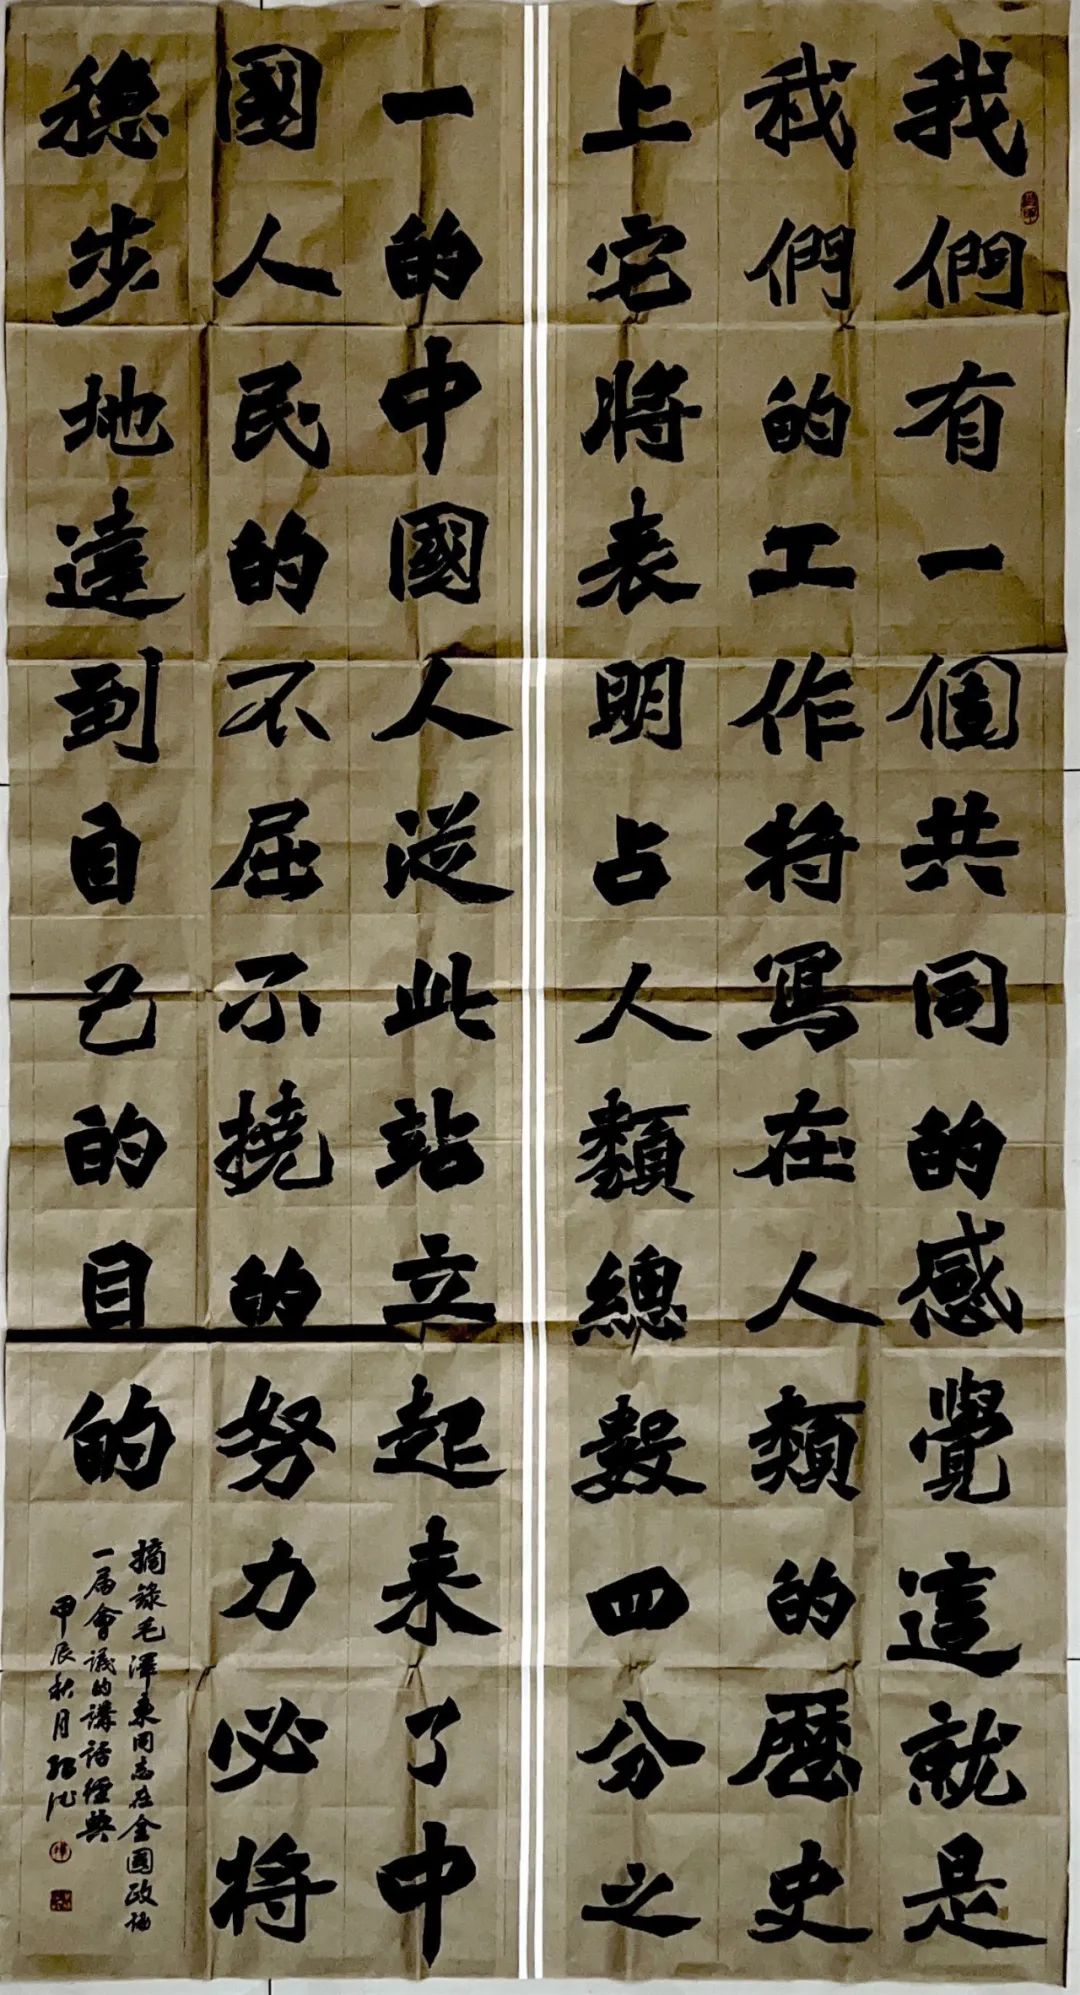 我們有一個共同的感覺這就是
我們的工作将寫在人類的歷史
上它將表明占人類總數四分之
一的中國人從此站立起来了中
國人民的不屈不撓的努力必将
穩步地達到自己的目的
摘錄毛澤東同志在全國政協
一届會議的講話經典
甲辰秋月